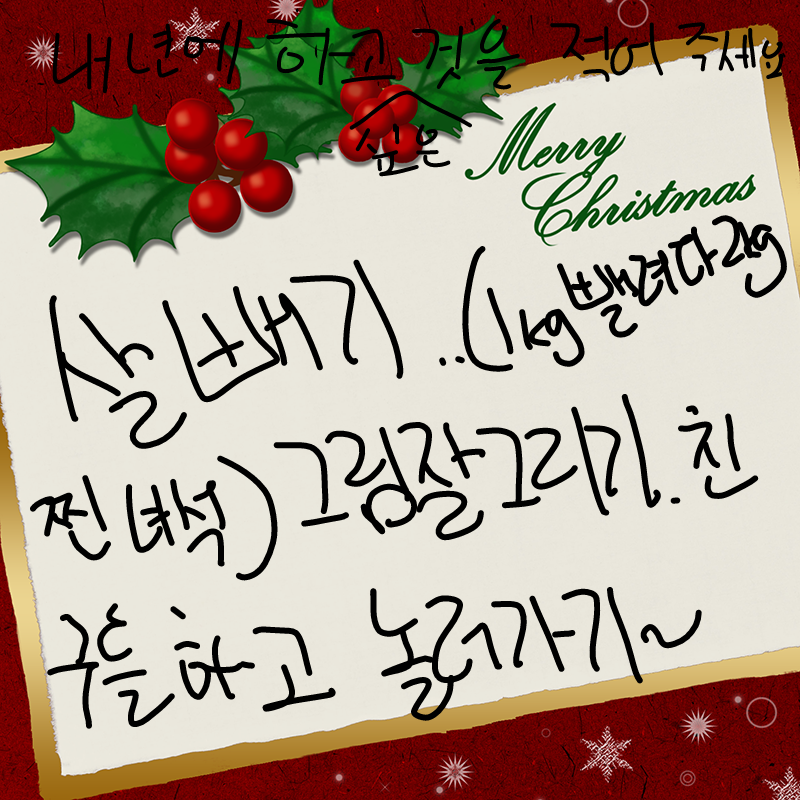 내년에 하고 싶은 것을 적어 주세요
Merry
Christmas
살빼기..(1kg빼려다2kg
찐녀석)그림잘그리기.친
구들하고 놀러가기~